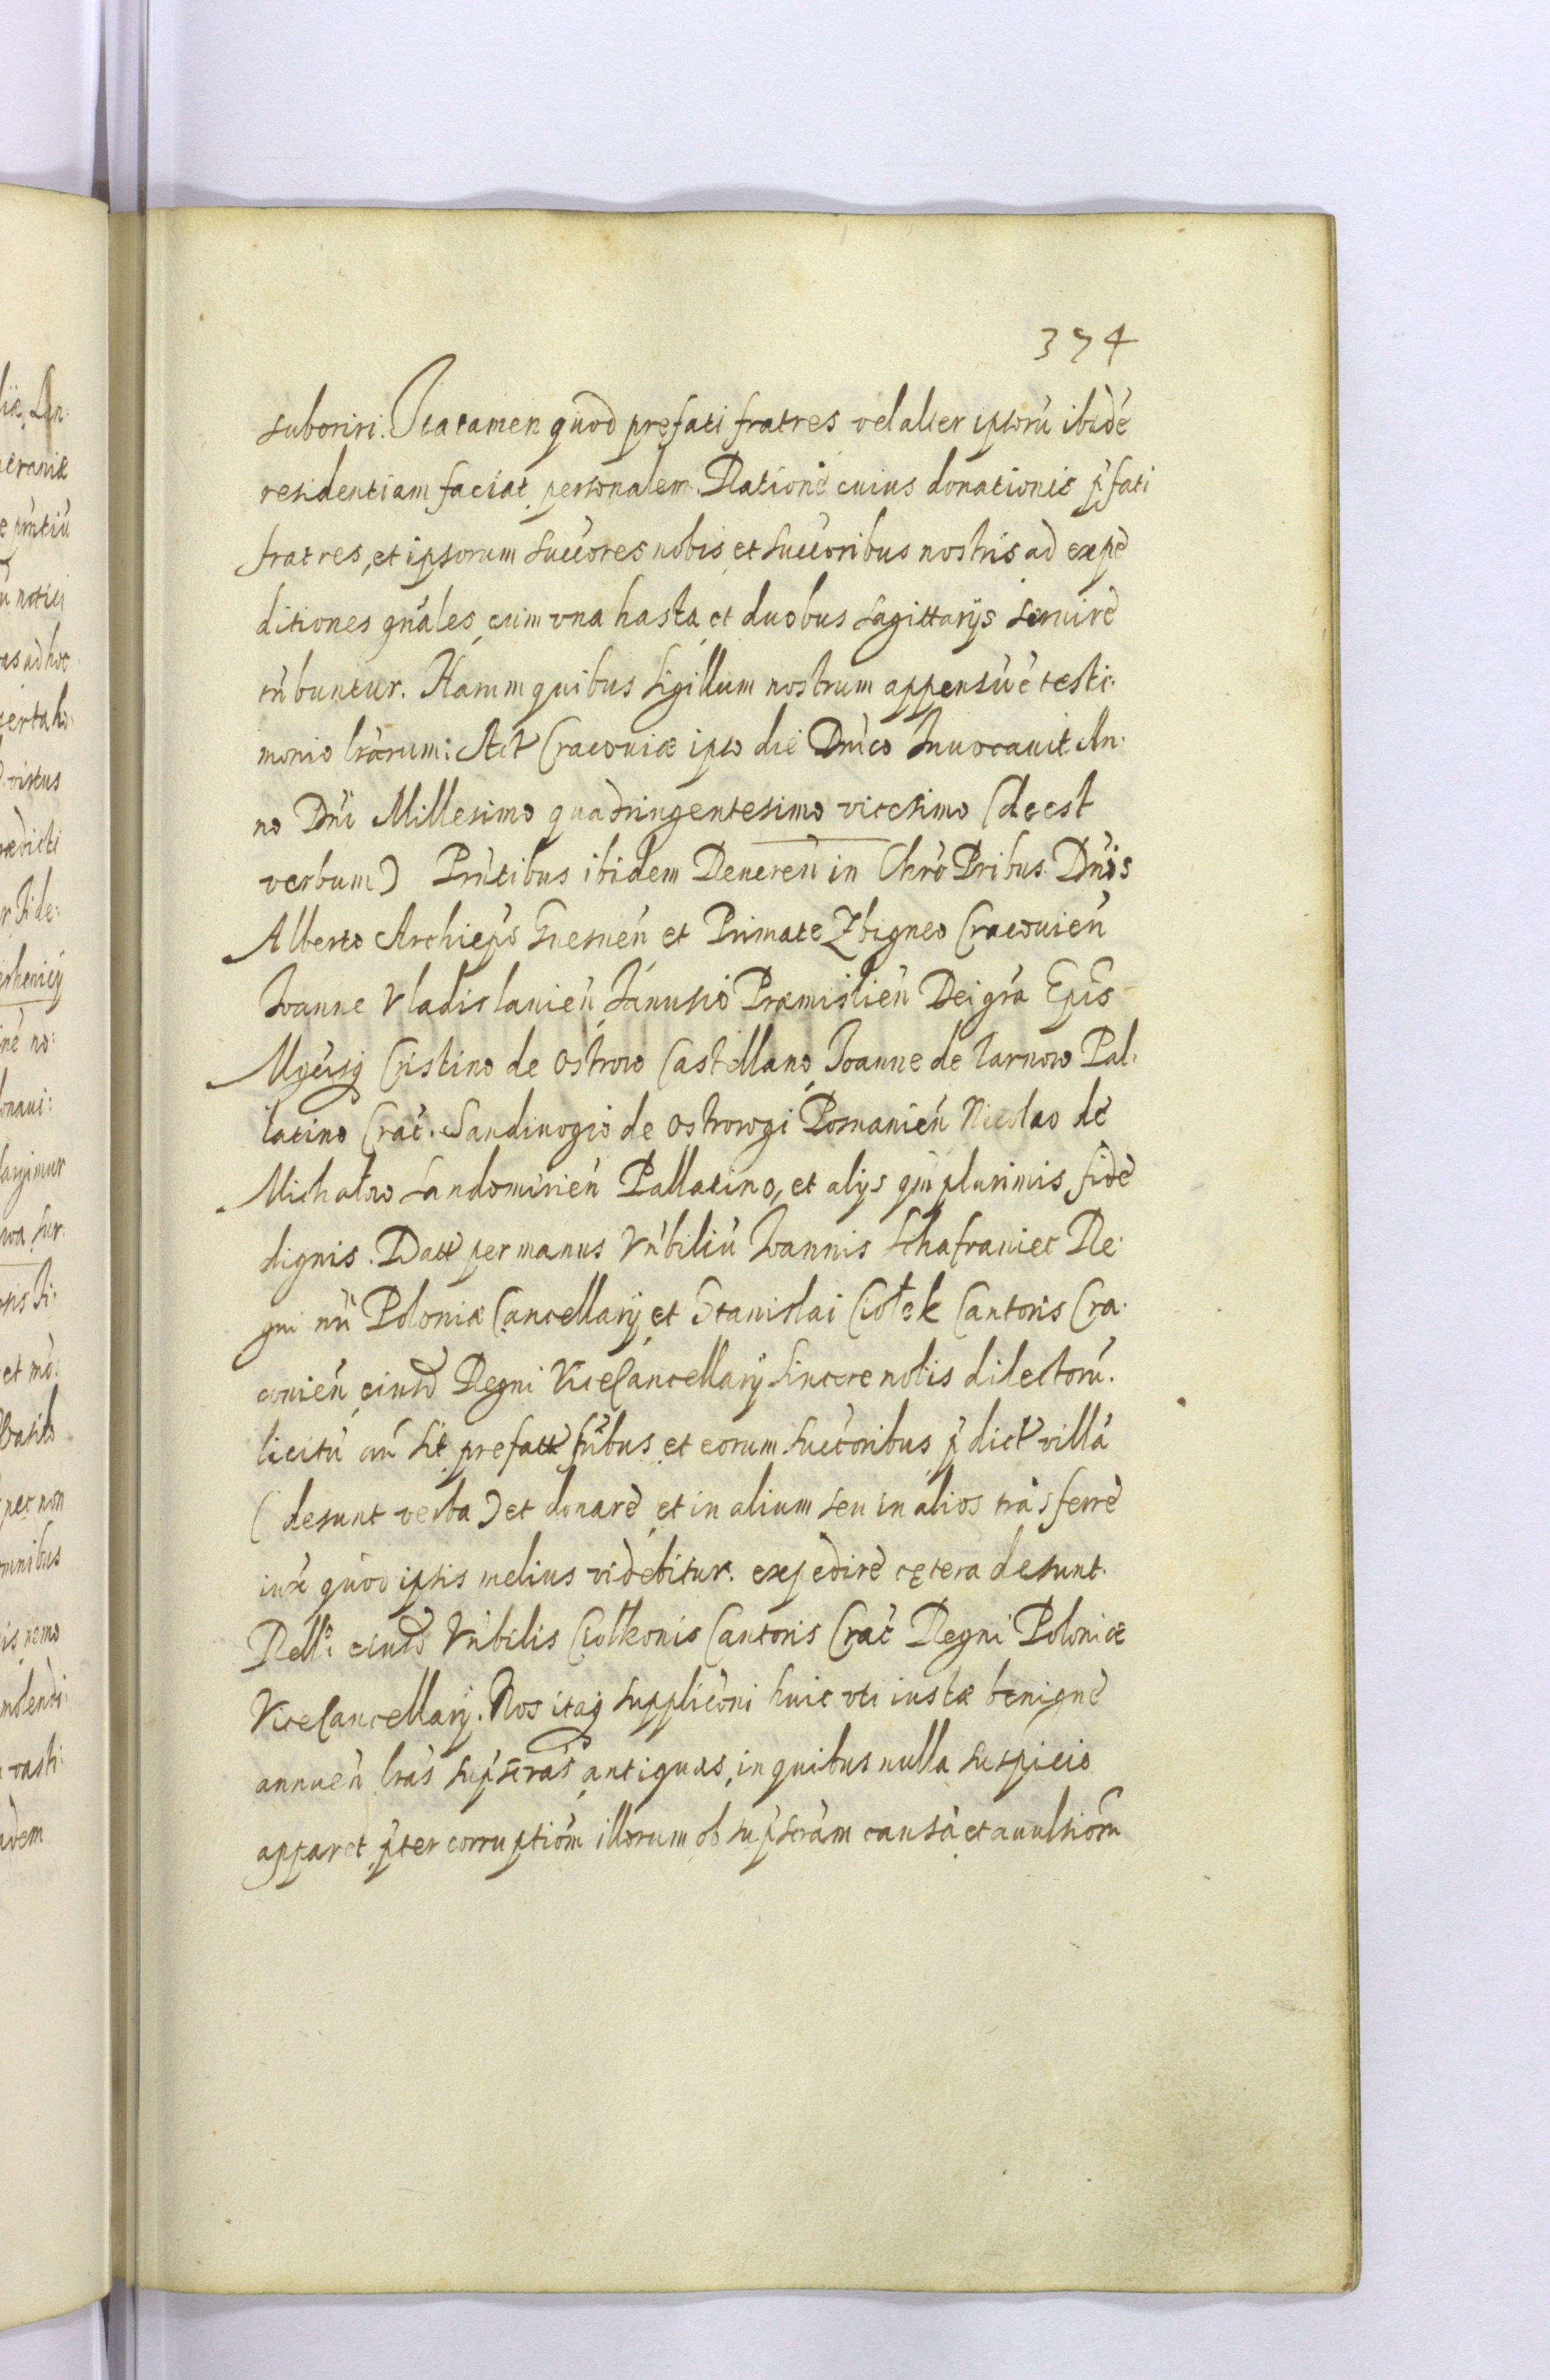 374
suboriri. Ita tamen quod prefati fratres vel alter ipsorũ ibidẽ
residentiam faciat personalem. Ratione cuius donationis p̃fati
fratres, et ipsorum succores nobis et succoribus nostris ad expe
ditiones gñales cum vna hasta et duobus sagittarijs seruire
tñbuntur. Harum quibus sigillum nostrum appensũ ẽ testi-
monio lrãrum: Act Cracouiæ ipso die Dnico Inuocauit An-
no Dñi Millesimo quadringentesimo vicesimo (deest
verbum) Prñtibus ibidem Reueren in Chrõ Pribus Dñis
Alberto Archiepõ Gnesneñ et Primate Zbigneo Cracouieñ
Ioanne Vladislauieñ Ianusio Præmislieñ Dei grã Epis
Mgcisq Cristino de Ostrow Castellano, Ioanne de Tarnow Pal-
latino Crac. Sandiuogio de Ostrorogi Posnanieñ Nicolao de
Michalow Sandomirieñ Pallatino, et alijs qm plurimis fide
dignis. Datt per manus Vñbiliũ Ioannis Schafraniec Re-
gni nri Poloniæ Cancellarij et Stanislai Ciołek Cantoris Cra-
couieñ eiusd Regni ViceCancellarij sincere nobis dilectorũ.
licitũ aũ sit prefatt fribus et eorum succoribus p̃dict villã
(desunt verba) et donare et in alium seu in alios trãsferre
iuxe quod ipsis melius videbitur. expedire cętera desunt.
Rello eiusd Vñbilis Ciołkonis Cantoris Crac Regni Poloniæ
ViceCancellarij. Nos itaq supplicõni huic vti iustæ benigne
annueñ lrãs supscrãs antiquas, in quibus nulla suspicio
apparet p̃ter corruptiõm illorum ob supscrãm causã et auulsiõm